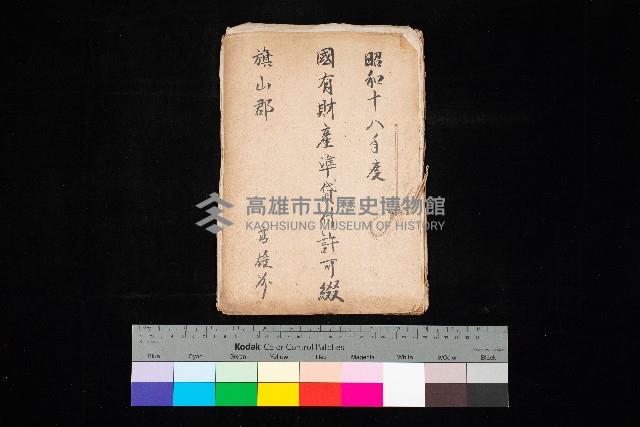 昭和十八年度
國有財產準貸付許可綴
旗山郡
高雄州
高雄市立歷史博物館
KAOHSIUNG MUSEUM OF HISTORY
Kodak Color Control Patches
Blue
Cyan
Green
Yellow
Red
Magenta
White
3/Color
Black